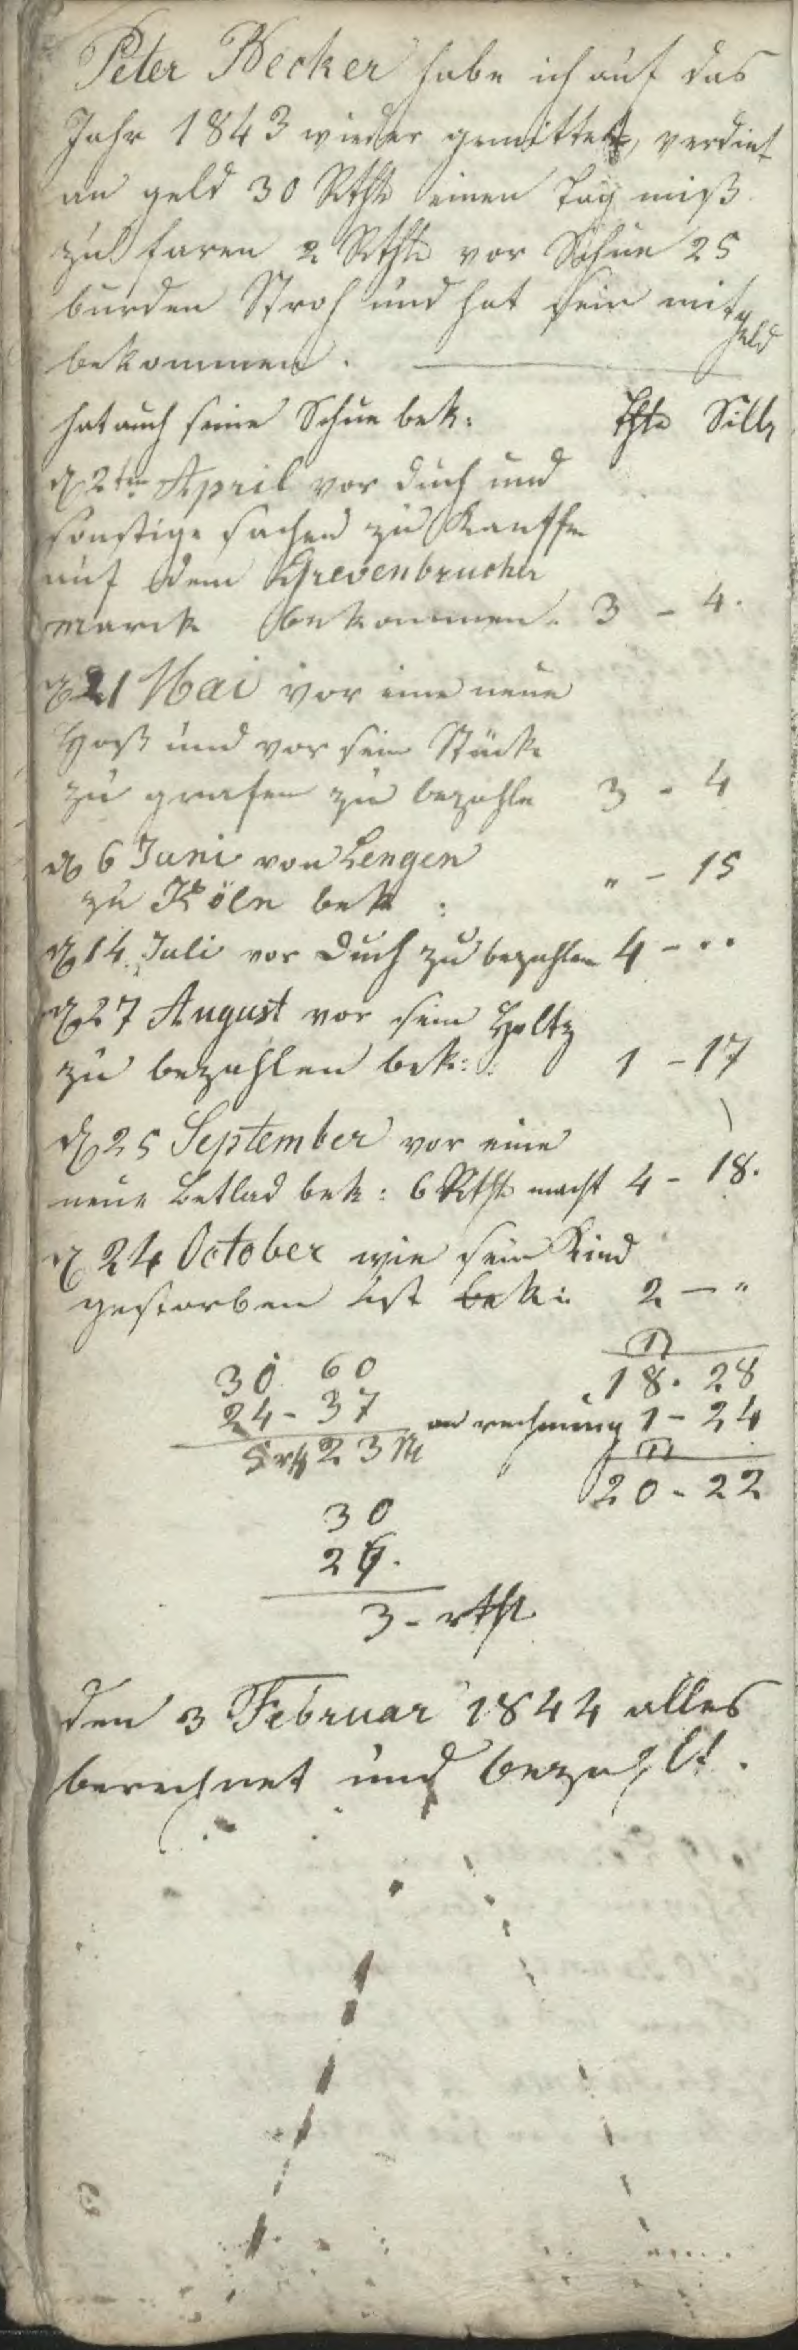 Peter Becker habe ich auf das
Jahr 1843 wieder gemittet, verdint
an geld 30 Rthl einen Tag miß
zu faren 2 Rthl vor Schue 25
burden Stroh und hat sein mit
geld
bekommen.
hat auch seine Schue bek: Thlr Silb
d 2ten April vor duch und
sonstige sachen zu Kauffen
auf dem Grevenbrucher
marck bekommen. 3 - 4.
d 21 Mai vor eine neue
Hoß und vor sein Stück
zu grafen zu bezahlen 3 - 4
d 6 Juni von Lengen
zu Köln bek : " - 15
d 14 Juli vor duch zu bezahlen 4 - ..
d 27 August vor sein Holtz
zu bezahlen bek: 1 - 17
d 25 September vor eine
neue Betlad bek: 6 Rthl macht 4 - 18.
d 24 October wie sein Kind
gestorben ist bek: 2 - "
30 60 18. 28
24 - 37 an rechnung 1 - 24
5 rth 23 20 - 22
30
26.
3 - rthl
den 3 Februar 1844 alles
berechnet und bezahlt.